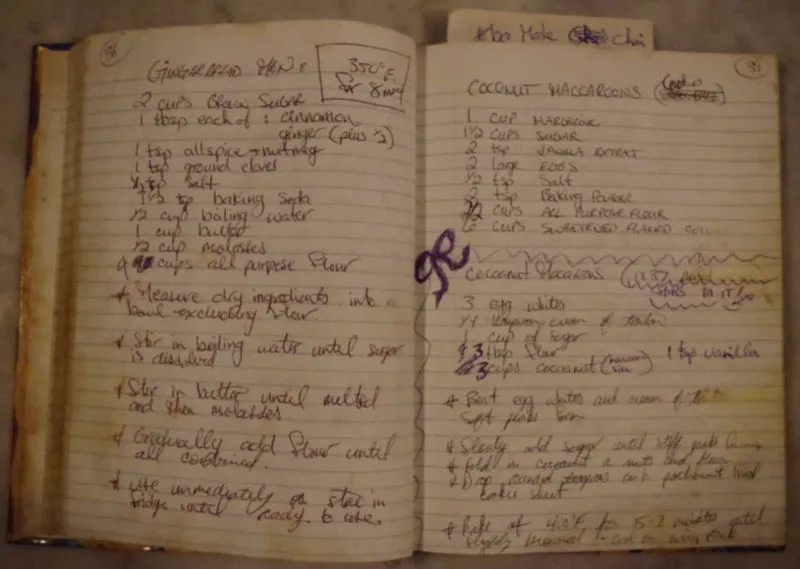 GINGERBREAD MEN:
350°F
for 8 min
2 cups Brown Sugar
1 tbsp each of: cinnamon
ginger (plus ½)
1 tsp allspice + nutmeg
1 tsp ground cloves
½ tsp salt
1½ tsp baking soda
½ cup boiling water
1 cup butter
½ cup molasses
cups all purpose flour
* Measure dry ingredients into
bowl excluding flour
* Stir in boiling water until sugar
is dissolved
* Stir in butter until melted
and then molasses
* Gradually add flour until
all combined.
* Use immediately or store in
fridge until ready to use
Make Chai
COCONUT MACCAROONS
1 CUP MARGERINE
1½ CUPS SUGAR
2 tsp VANILLA EXTRACT
2 large EGGS
½ tsp Salt
2 tsp Baking Powder
CUPS ALL PURPOSE FLOUR
6 CUPS SWEETENED FLAKED
COCOANUT MACAROONS
3 egg whites
¼ cream of
1 cup of sugar
3 tbsp flour 1 tsp vanilla
3 cups cocoanut
* Beat egg whites and cream of
soft peaks form
* Slowly add sugar until stiff peaks
* fold in cocoanut
* Drop rounded parchment lined
cookie sheet
* Bake at for minutes until